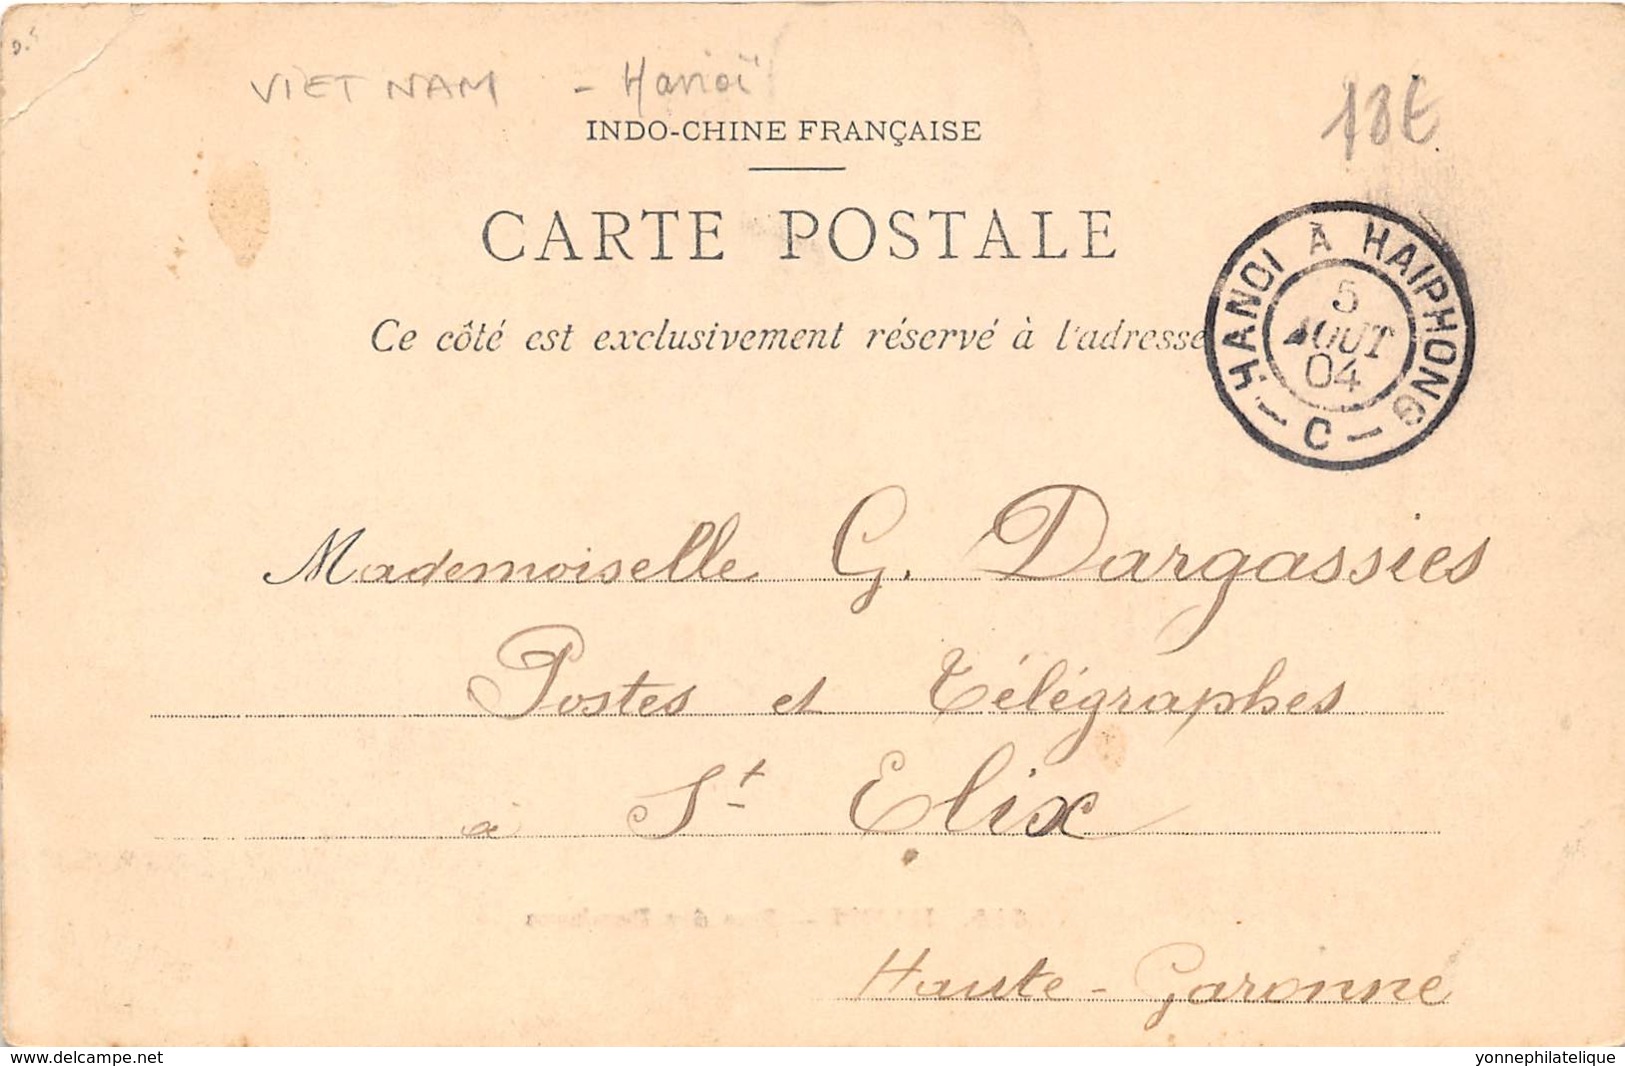 VIET NAM - Hanoï
18€
INDO-CHINE FRANÇAISE
CARTE POSTALE
Ce côté est exclusivement réservé à l'adresse
HANOI A HAIPHONG
5
AOUT
04
- C -
Mademoiselle G. Dargassies
Postes et Télégraphes
à St Elix
Haute-Garonne
www.delcampe.net
yonnephilatelique